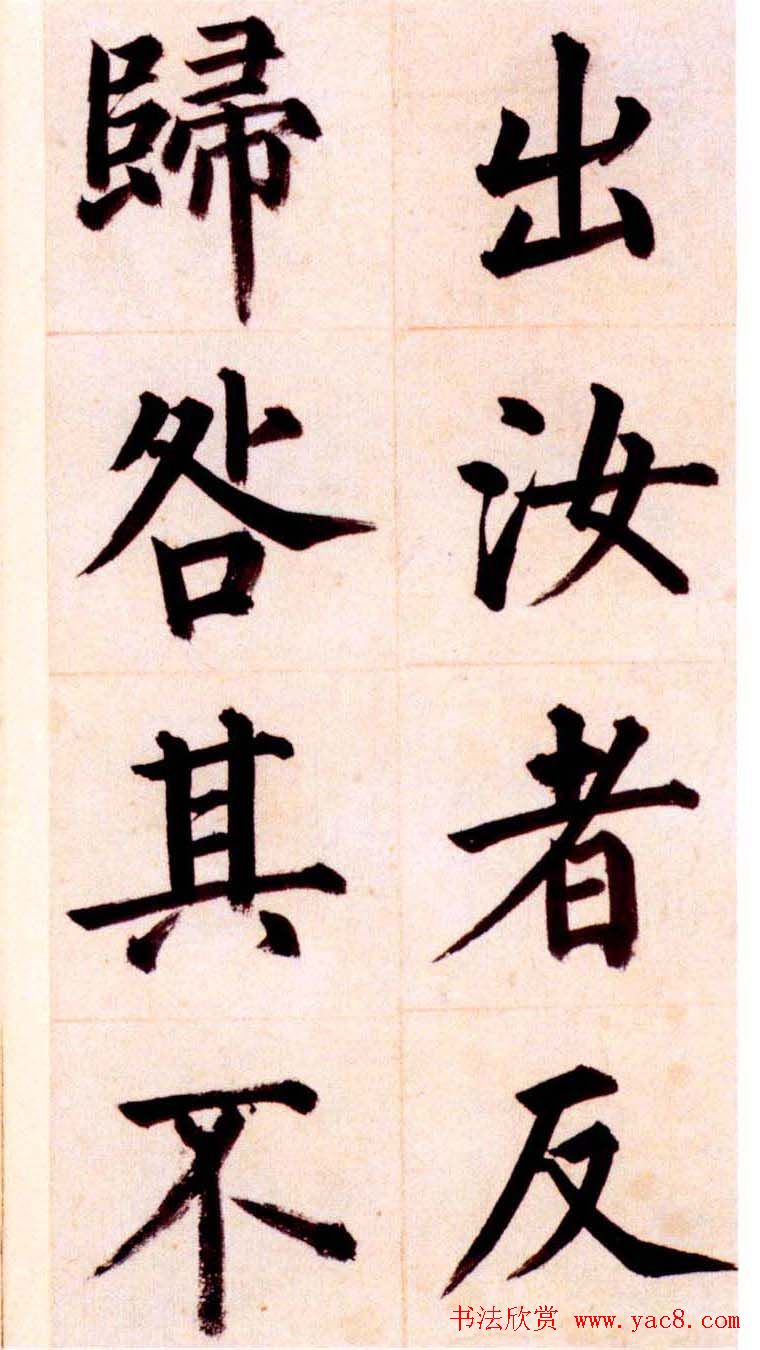 出汝者反
歸咎其不
书法欣赏 www.yac8.com